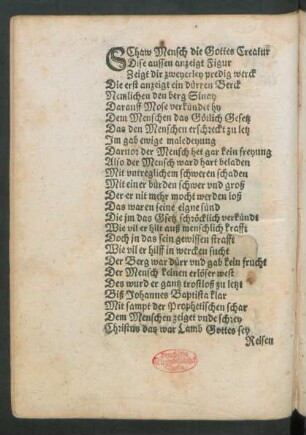 SChaw Mensch die Gottes Creatur
Dise aussen anzeigt Figur
Zeigt dir zweyerley predig werck
Die erst anzeigt ein dürren Berck
Nemlichen den berg Sinay
Darauff Mose verkündet hy
Dem Menschen das Götlich Gesetz
Das den Menschen erschreckt zu letz
Im gab ewige maledeyung
Daruor der Mensch het gar kein freyung
Also der Mensch ward hart beladen
Mit vntreglichem schweren schaden
Mit einer bürden schwer vnd groß
Der er nit mehr mocht werden loß
Das waren seine eigne sünd
Die jm das Gsetz schröcklich verkündt
Wie vil er hilt auß menschlich krafft
Doch jn das sein gewissen strafft
Wie vil er hilff in wercken sucht
Der Berg war dürr vnd gab kein frucht
Der Mensch keinen erlöser west
Des wurd er gantz trostloß zu letzt
Biß Johannes Baptista klar
Mit sampt der Prophetischen schar
Dem Menschen zeiget vnde schrey
Christus daz war Lamb Gottes sey
Reisen